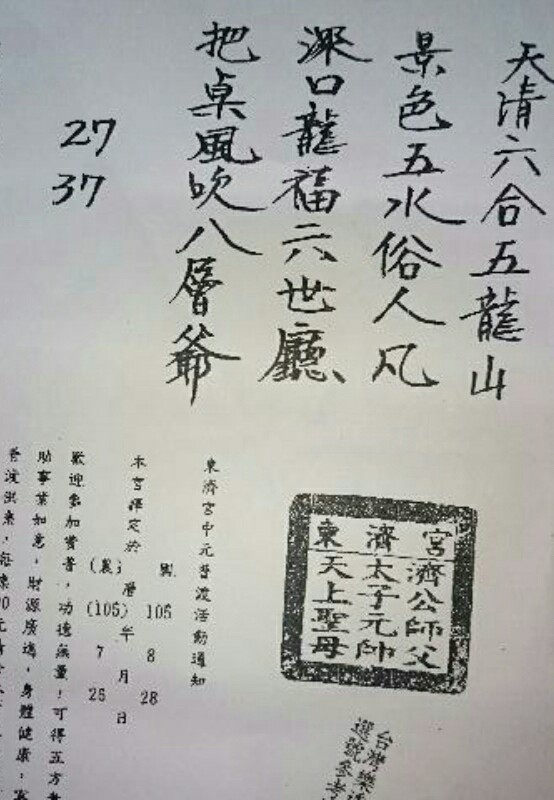 天清六合五龍山
景色五水俗人凡
深口龍福六世廳
把桌風吹八層爺
27
37
宮濟東
濟公師父
太子元帥
天上聖母
東濟宮中元普渡活動通知
本宮擇定於
國曆 105年8月28日
(農) (105) 7 26
歡迎參加贊普，功德無量！可得五方
助事業如意，財源廣進，身體健康，
普渡
台灣樂
選號參考